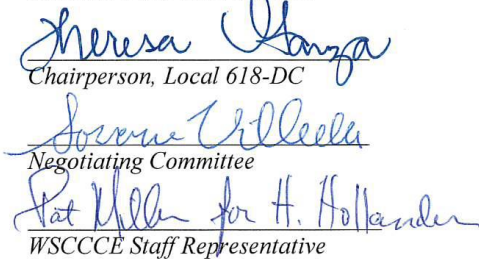 Theresa Garza
Chairperson, Local 618-DC
Negotiating Committee
Pat Miller for H. Hollander
WSCCCE Staff Representative